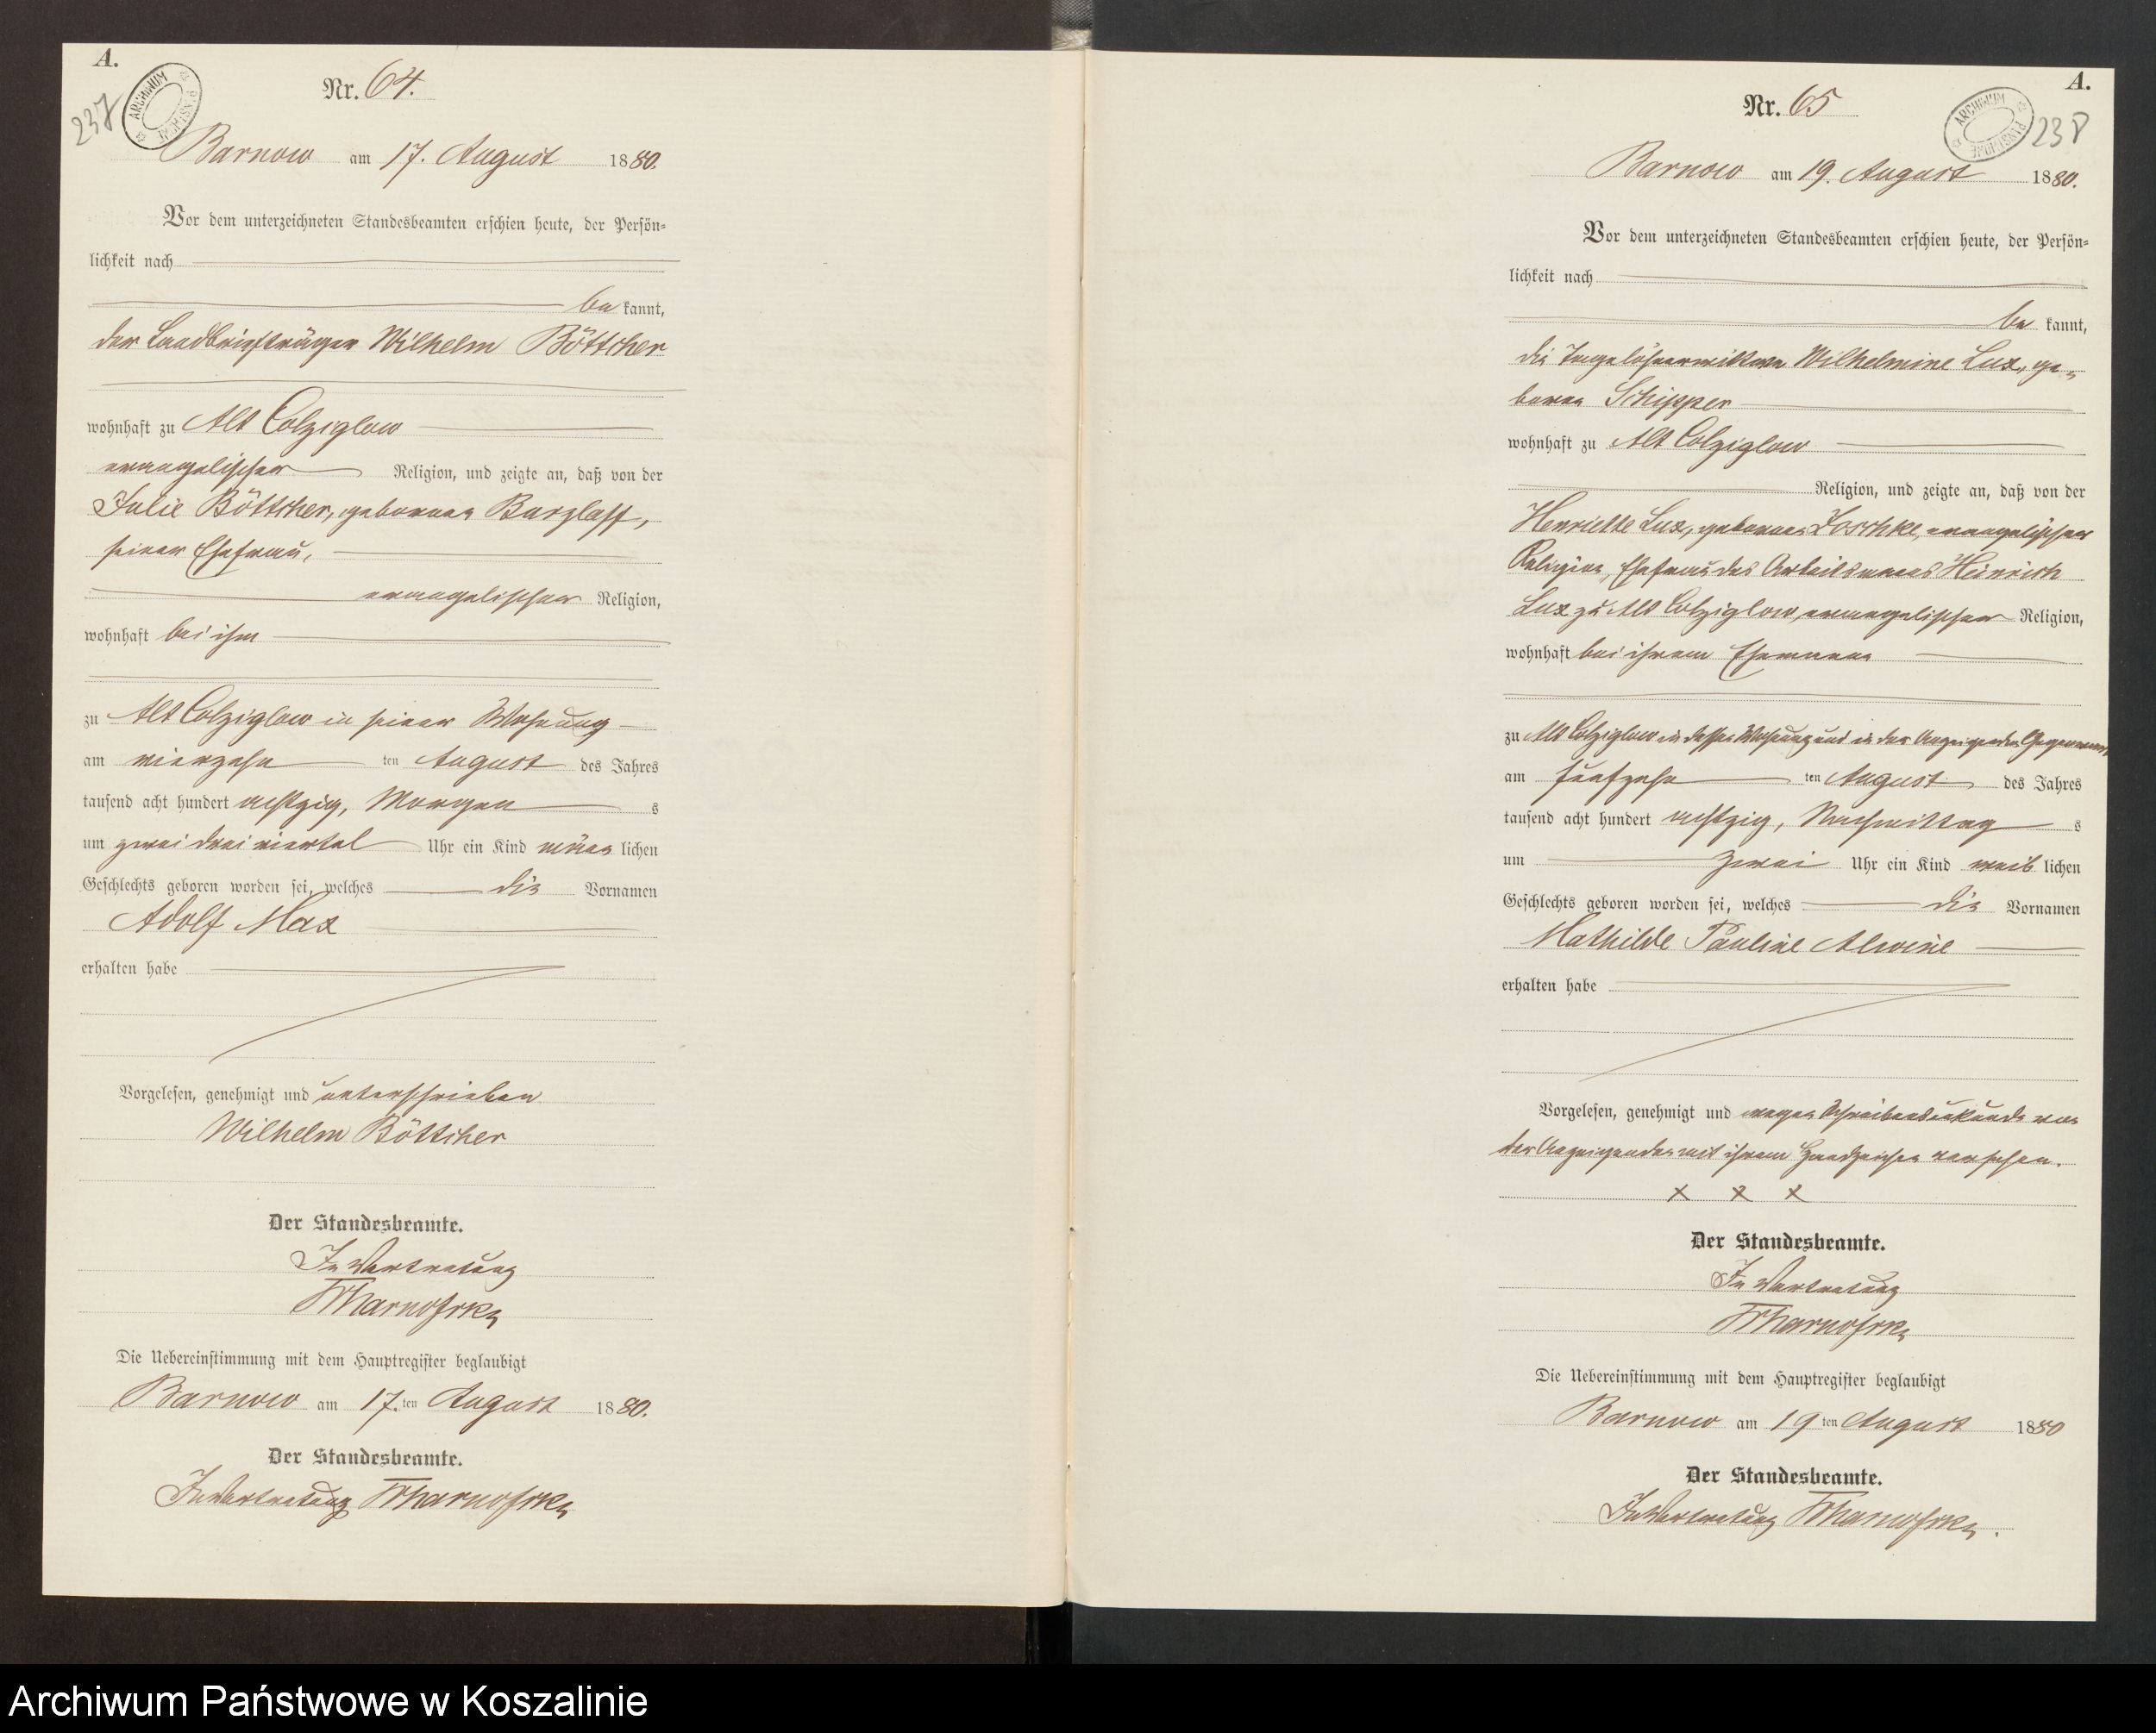 A.
237
ARCHIWUM PAŃSTWOWE
Nr. 64.
Barnow am 17. August 1880.
Vor dem unterzeichneten Standesbeamten erschien heute, der Persön=
lichkeit nach
be kannt,
der Landbriefträger Wilhelm Böttcher
wohnhaft zu Alt Colziglow
evangelischer Religion, und zeigte an, daß von der
Julie Böttcher, geborenen Barzlaff,
seiner Ehefrau,
evangelischer Religion,
wohnhaft bei ihm
zu Alt Colziglow in seiner Wohnung
am vierzehn ten August des Jahres
tausend acht hundert achtzig, Morgen s
um zwei drei viertel Uhr ein Kind männ lichen
Geschlechts geboren worden sei, welches die Vornamen
Adolf Max
erhalten habe
Vorgelesen, genehmigt und unterschrieben
Wilhelm Böttcher
Der Standesbeamte.
In Vertretung
Die Uebereinstimmung mit dem Hauptregister beglaubigt
Barnow am 17. ten August 1880.
Der Standesbeamte.
In Vertretung
A.
238
ARCHIWUM PAŃSTWOWE
Nr. 65
Barnow am 19. August 1880.
Vor dem unterzeichneten Standesbeamten erschien heute, der Persön=
lichkeit nach
be kannt,
die Tagelöhnerwittwe Wilhelmine Lux, ge=
borene Schipper
wohnhaft zu Alt Colziglow
Religion, und zeigte an, daß von der
Henriette Lux, geborenen Joschke, evangelischer
Religion, Ehefrau des Arbeitsmanns Heinrich
Lux zu Alt Colziglow, evangelischer Religion,
wohnhaft bei ihrem Ehemann
zu Alt Colziglow in dessen Wohnung und in der Anzeigenden Gegenwart,
am fünfzehn ten August des Jahres
tausend acht hundert achtzig, Nachmittag s
um zwei Uhr ein Kind weib lichen
Geschlechts geboren worden sei, welches die Vornamen
Mathilde Pauline Alwine
erhalten habe
Vorgelesen, genehmigt und wegen Schreibensunkunde von
der Anzeigenden mit ihrem Handzeichen versehen.
x x x
Der Standesbeamte.
In Vertretung
Die Uebereinstimmung mit dem Hauptregister beglaubigt
Barnow am 19 ten August 1880
Der Standesbeamte.
In Vertretung
Archiwum Państwowe w Koszalinie